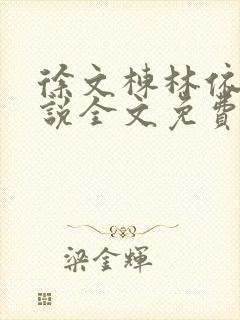 徐文棟林依
說全文免費
梁金輝